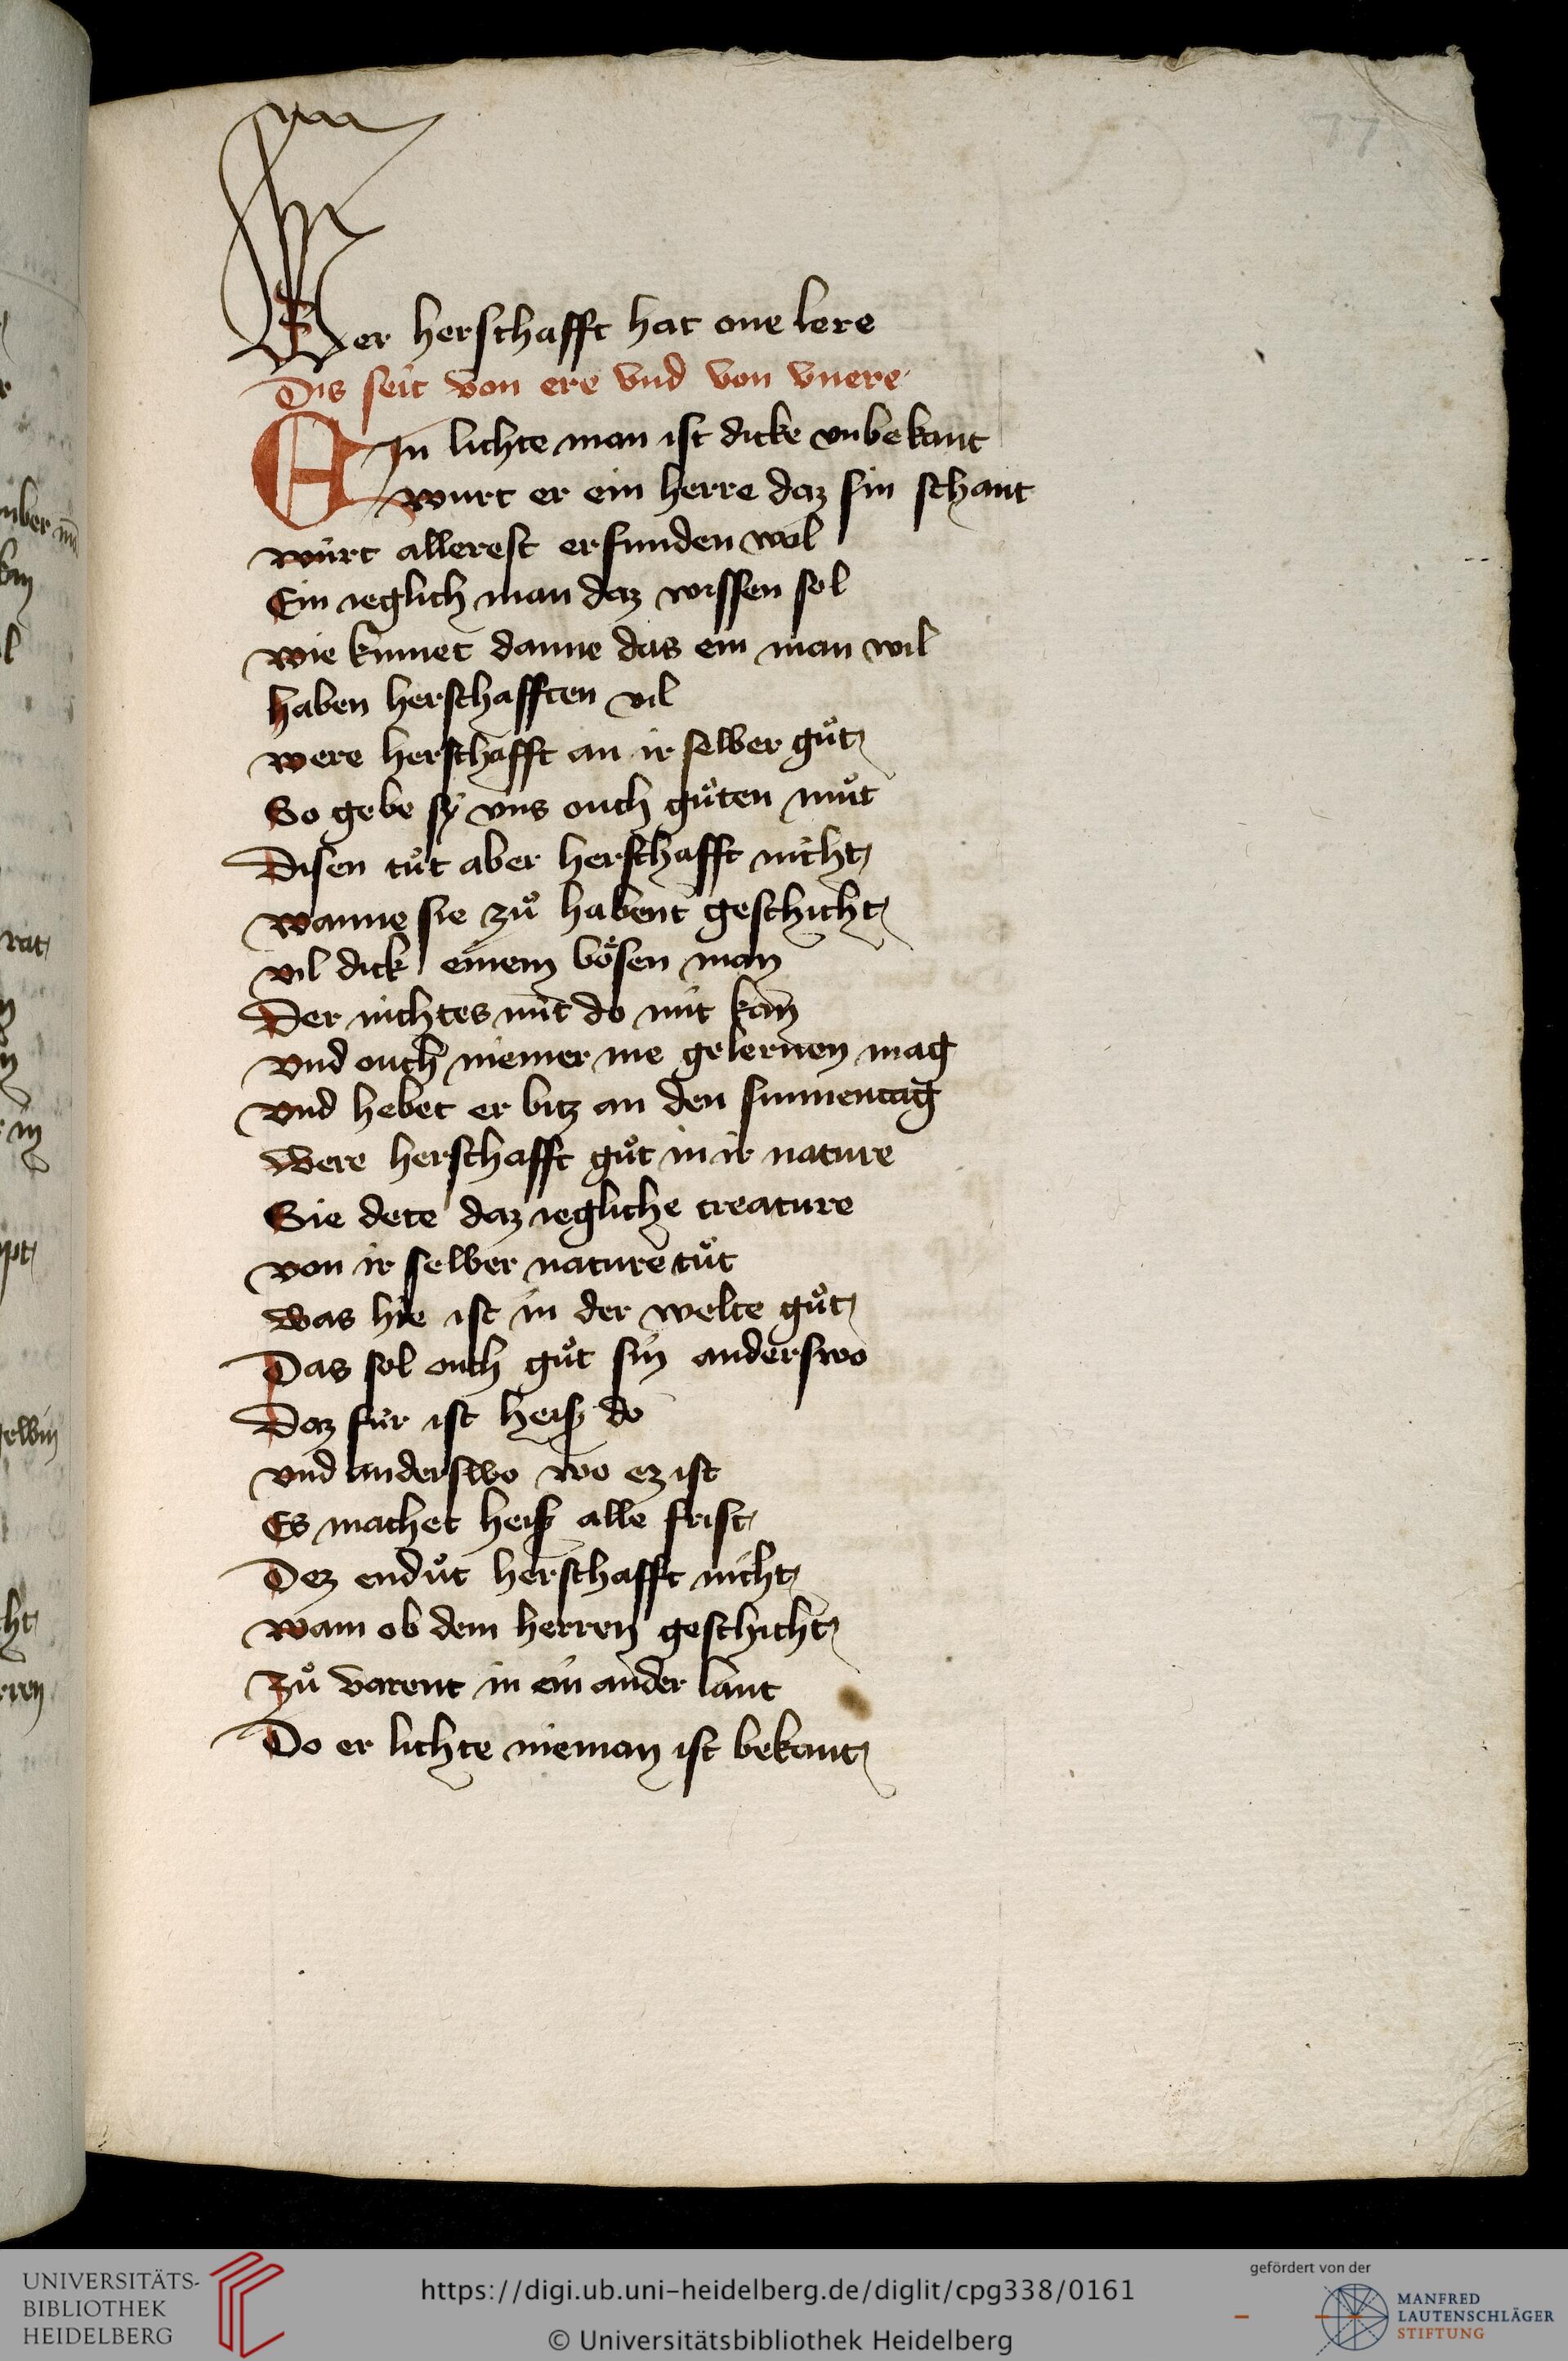 77
Wer herschafft hat one lere
Dis seit von ere vnd von vnere
EIn lichte man ist dicke vnbekant
wurt er ein herre daz sin schant
würt allerest erfunden wol
Ein ieglich man daz wissen sol
wie kummet danne das ein man wil
haben herschafften vil
were herschafft an ir selber guͦt
So gebe sÿ vns ouch guͦten muͦt
Disen tuͦt aber herschafft nicht
wanne sie zuͦ habent geschicht
vil dick einem boͤsen man
Der nichtes nit do mit kan
vnd ouch niemer me gelernen mag
vnd hebet er bitz an den sunnentag
Were herschafft guͦt in ir nature
Sie dete daz iegliche creature
von ir selber nature tuͦt
Was hie ist in der welte guͦt
Das sol ouch guͦt sin anderswo
Daz für ist heiß do
vnd anderswo wo ez ist
Es machet heiß alle frist
Dez enduͦt herschafft nicht
wann ob dem herren geschicht
zuͦ varent in ein ander lant
Do er lichte nieman ist bekant
UNIVERSITÄTS-
BIBLIOTHEK
HEIDELBERG
https://digi.ub.uni-heidelberg.de/diglit/cpg338/0161
© Universitätsbibliothek Heidelberg
gefördert von der
MANFRED
LAUTENSCHLÄGER
STIFTUNG